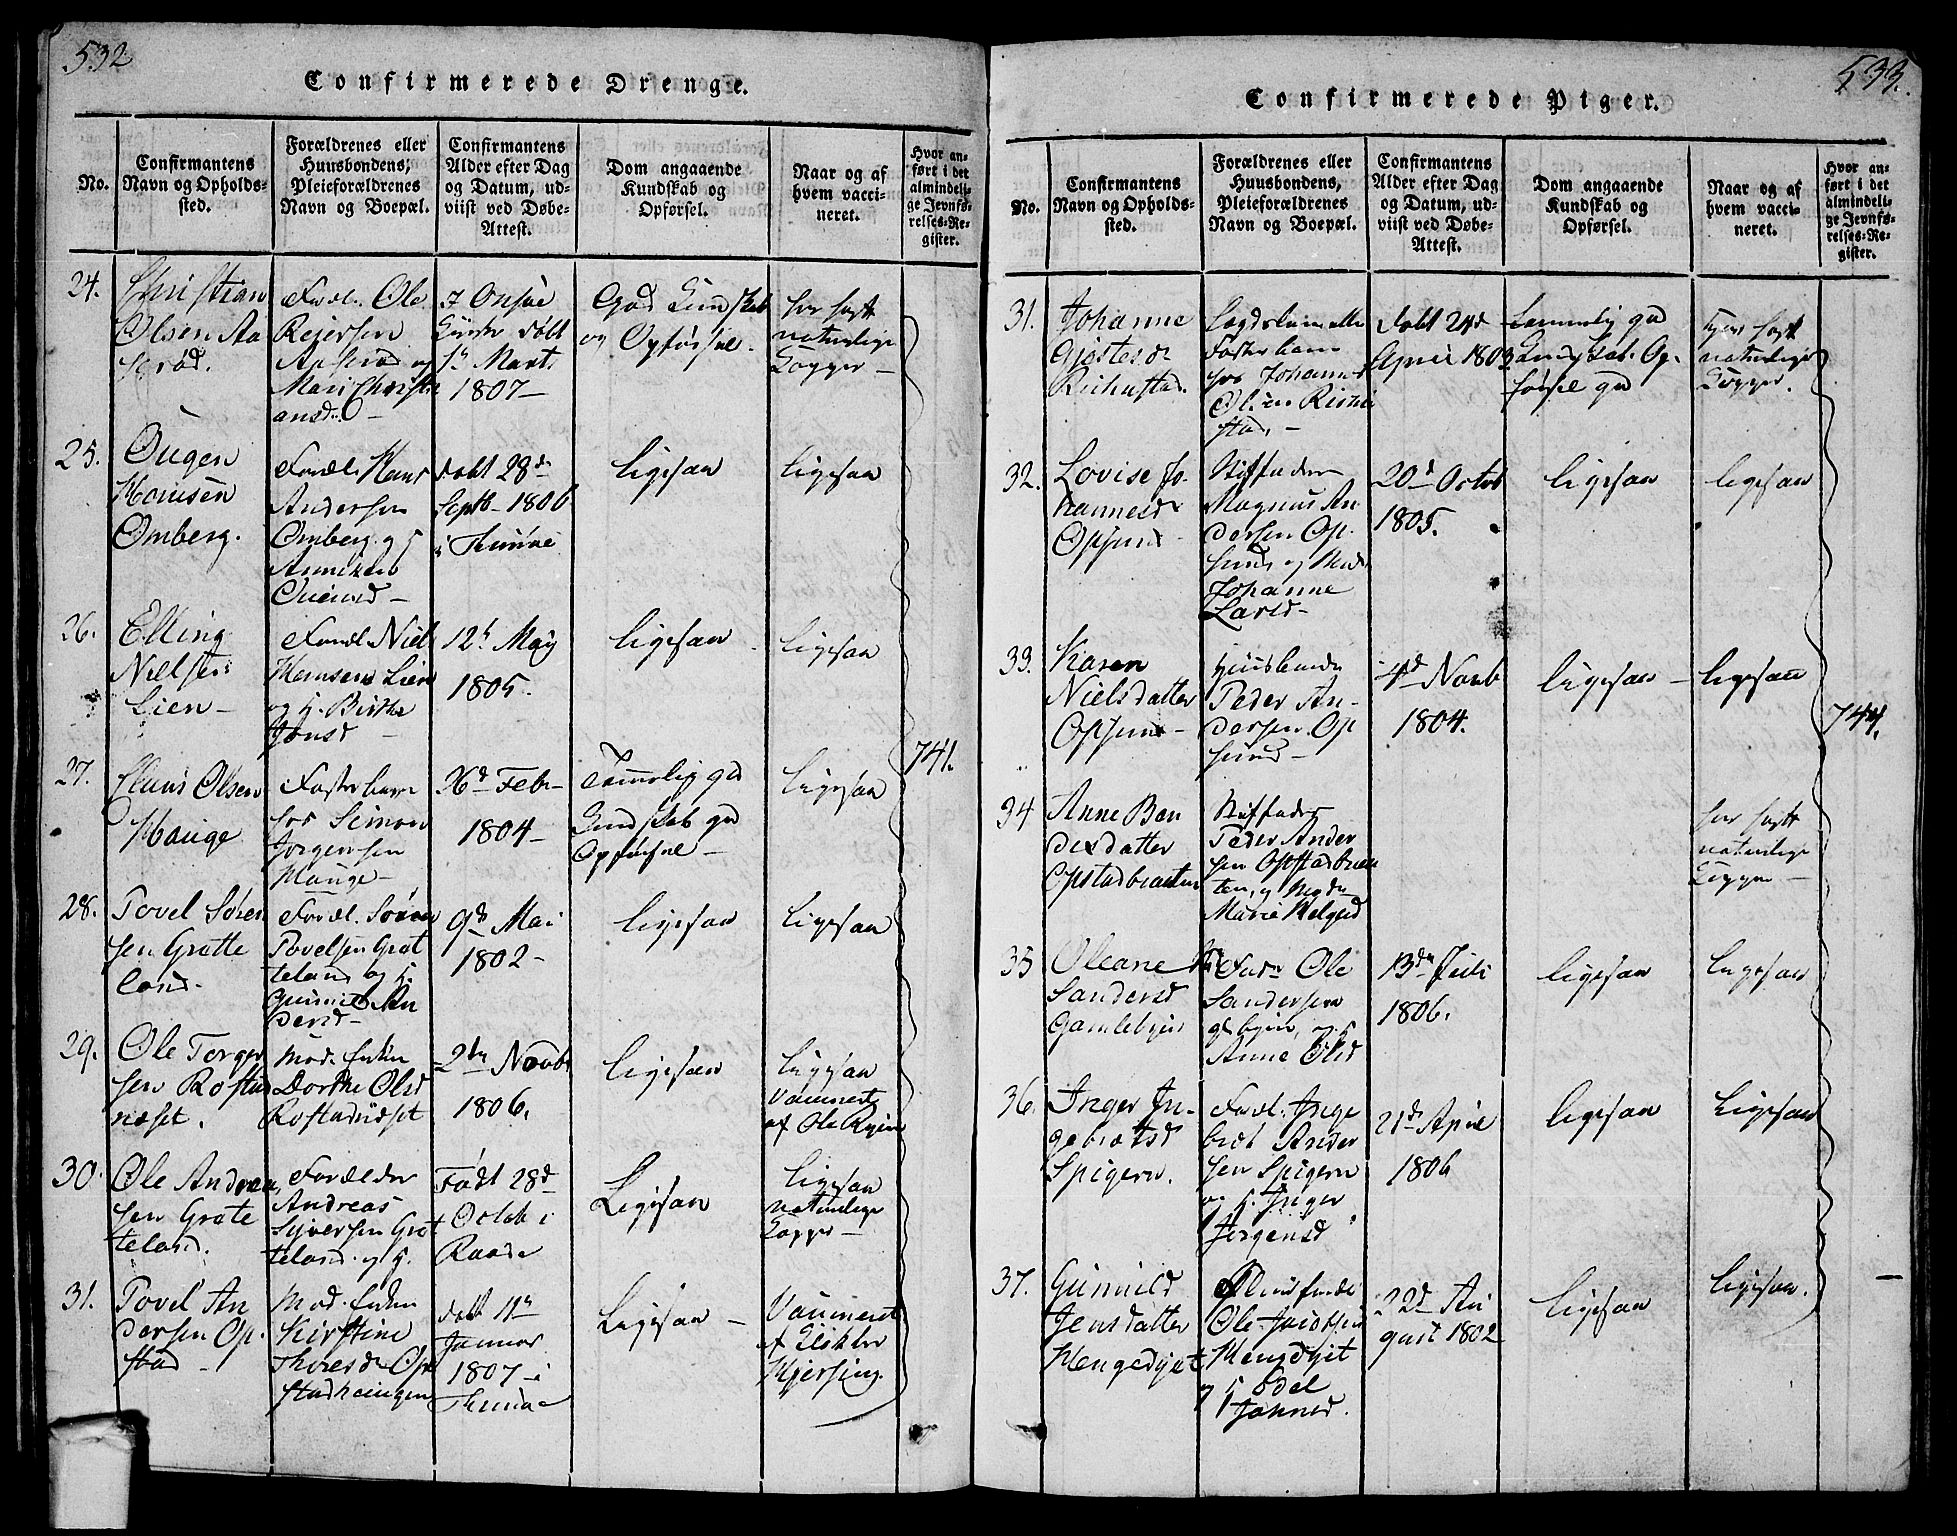 532
Confirmerede Drenge.
No.
Confirmantens
Navn og Opholds-
sted.
Forældrenes eller
Huusbondens,
Pleieforældrenes
Navn og Boepæl.
Confirmantens
Alder efter Dag
og Datum, ud-
viist ved Døbe-
Attest.
Dom angaaende
Kundskab og
Opførsel.
Naar og af
hvem vacci-
neret.
Hvor an-
ført i det
almindeli-
ge Jevnfø-
relses-Re-
gister.
24.
Christian
Olsen Aa
serød.
Foræl. Ole
Reiersen
Aaserød og
Mari Christi
ansd. –
i Onsøe
født
Marts
1807 –
God Kundskab
og Opførsel.
har havt
naturlige
Kopper –
25.
Hansen
Omberg.
Foræl. Hans
Andersen
Omberg og
født 28de
Septb. 1806
i Thunøe
ligesaa
ligesaa
26.
Elling
Nielsen
Lien –
Foræl Niel
Hansen Lien
og H. Birthe
Jonsd –
12te May
1805.
ligesaa
ligesaa
27.
Claus Olsen
Hauge
Fosterbarn
hos Simon
Jørgensen
Hauge –
26de Febr
1804 –
Temelig god
Kundskab god
Opførsel –
ligesaa
741.
28.
Povel Søren
sen Grotte
land.
Foræl. Søren
Povelsen Grot
teland og H.
Gunnild An
dersd –
9de Mai
1802 –
ligesaa
ligesaa
29.
Ole Torger
sen Rostad
næset.
Mod. Enken
Dorthe Olsd
Rostadnæset
2den Novbr
1806.
ligesaa
ligesaa
Vaccineret
af Ole Ryen
30.
Ole Andrea
sen Grote
teland.
Forælder
Andreas
Syversen Grot
teland og H.
Født 28de
Octob i
Raade
Ligesaa
ligesaa
naturlige
Kopper –
31.
Povel An
dersen Op-
stad –
Mod. Enken
Kirstine
Thoresd. Op
stadhaugen
født 11te
Januar
1807 – i
Thunøe
Ligesaa –
Vaccineret
af Klokker
Kjersing.
533.
Confirmerede Piger.
No.
Confirmantens
Navn og Opholds-
sted.
Forældrenes eller
Huusbondens,
Pleieforældrenes
Navn og Boepæl.
Confirmantens
Alder efter Dag
og Datum, ud-
viist ved Døbe-
Attest.
Dom angaaende
Kundskab og
Opførsel.
Naar og af
hvem vacci-
neret.
Hvor an-
ført i det
almindeli-
ge Jevnfø-
relses-Re-
gister.
31.
Johanne
Lægdslem eller
Fosterbarn
hos Johannes
Olsen
stad. –
Født 24de
April 1803
Temmelig god
Kundskab. Op-
førsel god
havt
naturlige
Kopper.
32.
Lovise Jo-
hannesd
Opsund
Stiffader
Magnus An
dersen Op-
sund og Mod.
Johanne
Larsd –
20de Octob
1805.
ligesaa
ligesaa
33.
Karen
Nielsdatter
Opsund –
Huusbonde
Peder An-
dersen Op
sund –
4de Novb
1804.
ligesaa –
ligesaa
744.
34
Anne Ben
dixdatter
Opstadbraaten
Stiffader
Peder Ander
sen Opstadbraa
ten, og Moder
Marie Helgesd
har havt
naturlige
Kopper –
35
Oleane
Sandersd
Gamlebyen
Fader Ole
Sandersen
glbyen, og H.
Anne Olsd
13de Juli
1806.
ligesaa
ligesaa
36.
Inger In-
gebretsd
Spigern.
Foræl. Inge
bret Ander
sen Spigern
og H. Inger
Jørgensd
21de April
1806
ligesaa
Ligesaa
37.
Gunnild
Jensdatter
Hengedyet
Huusbonde
Ole Jacobsen
Hengdyet
og H. Odel
Johnsd.
22de Au
gust 1802
ligesaa
ligesaa.
–